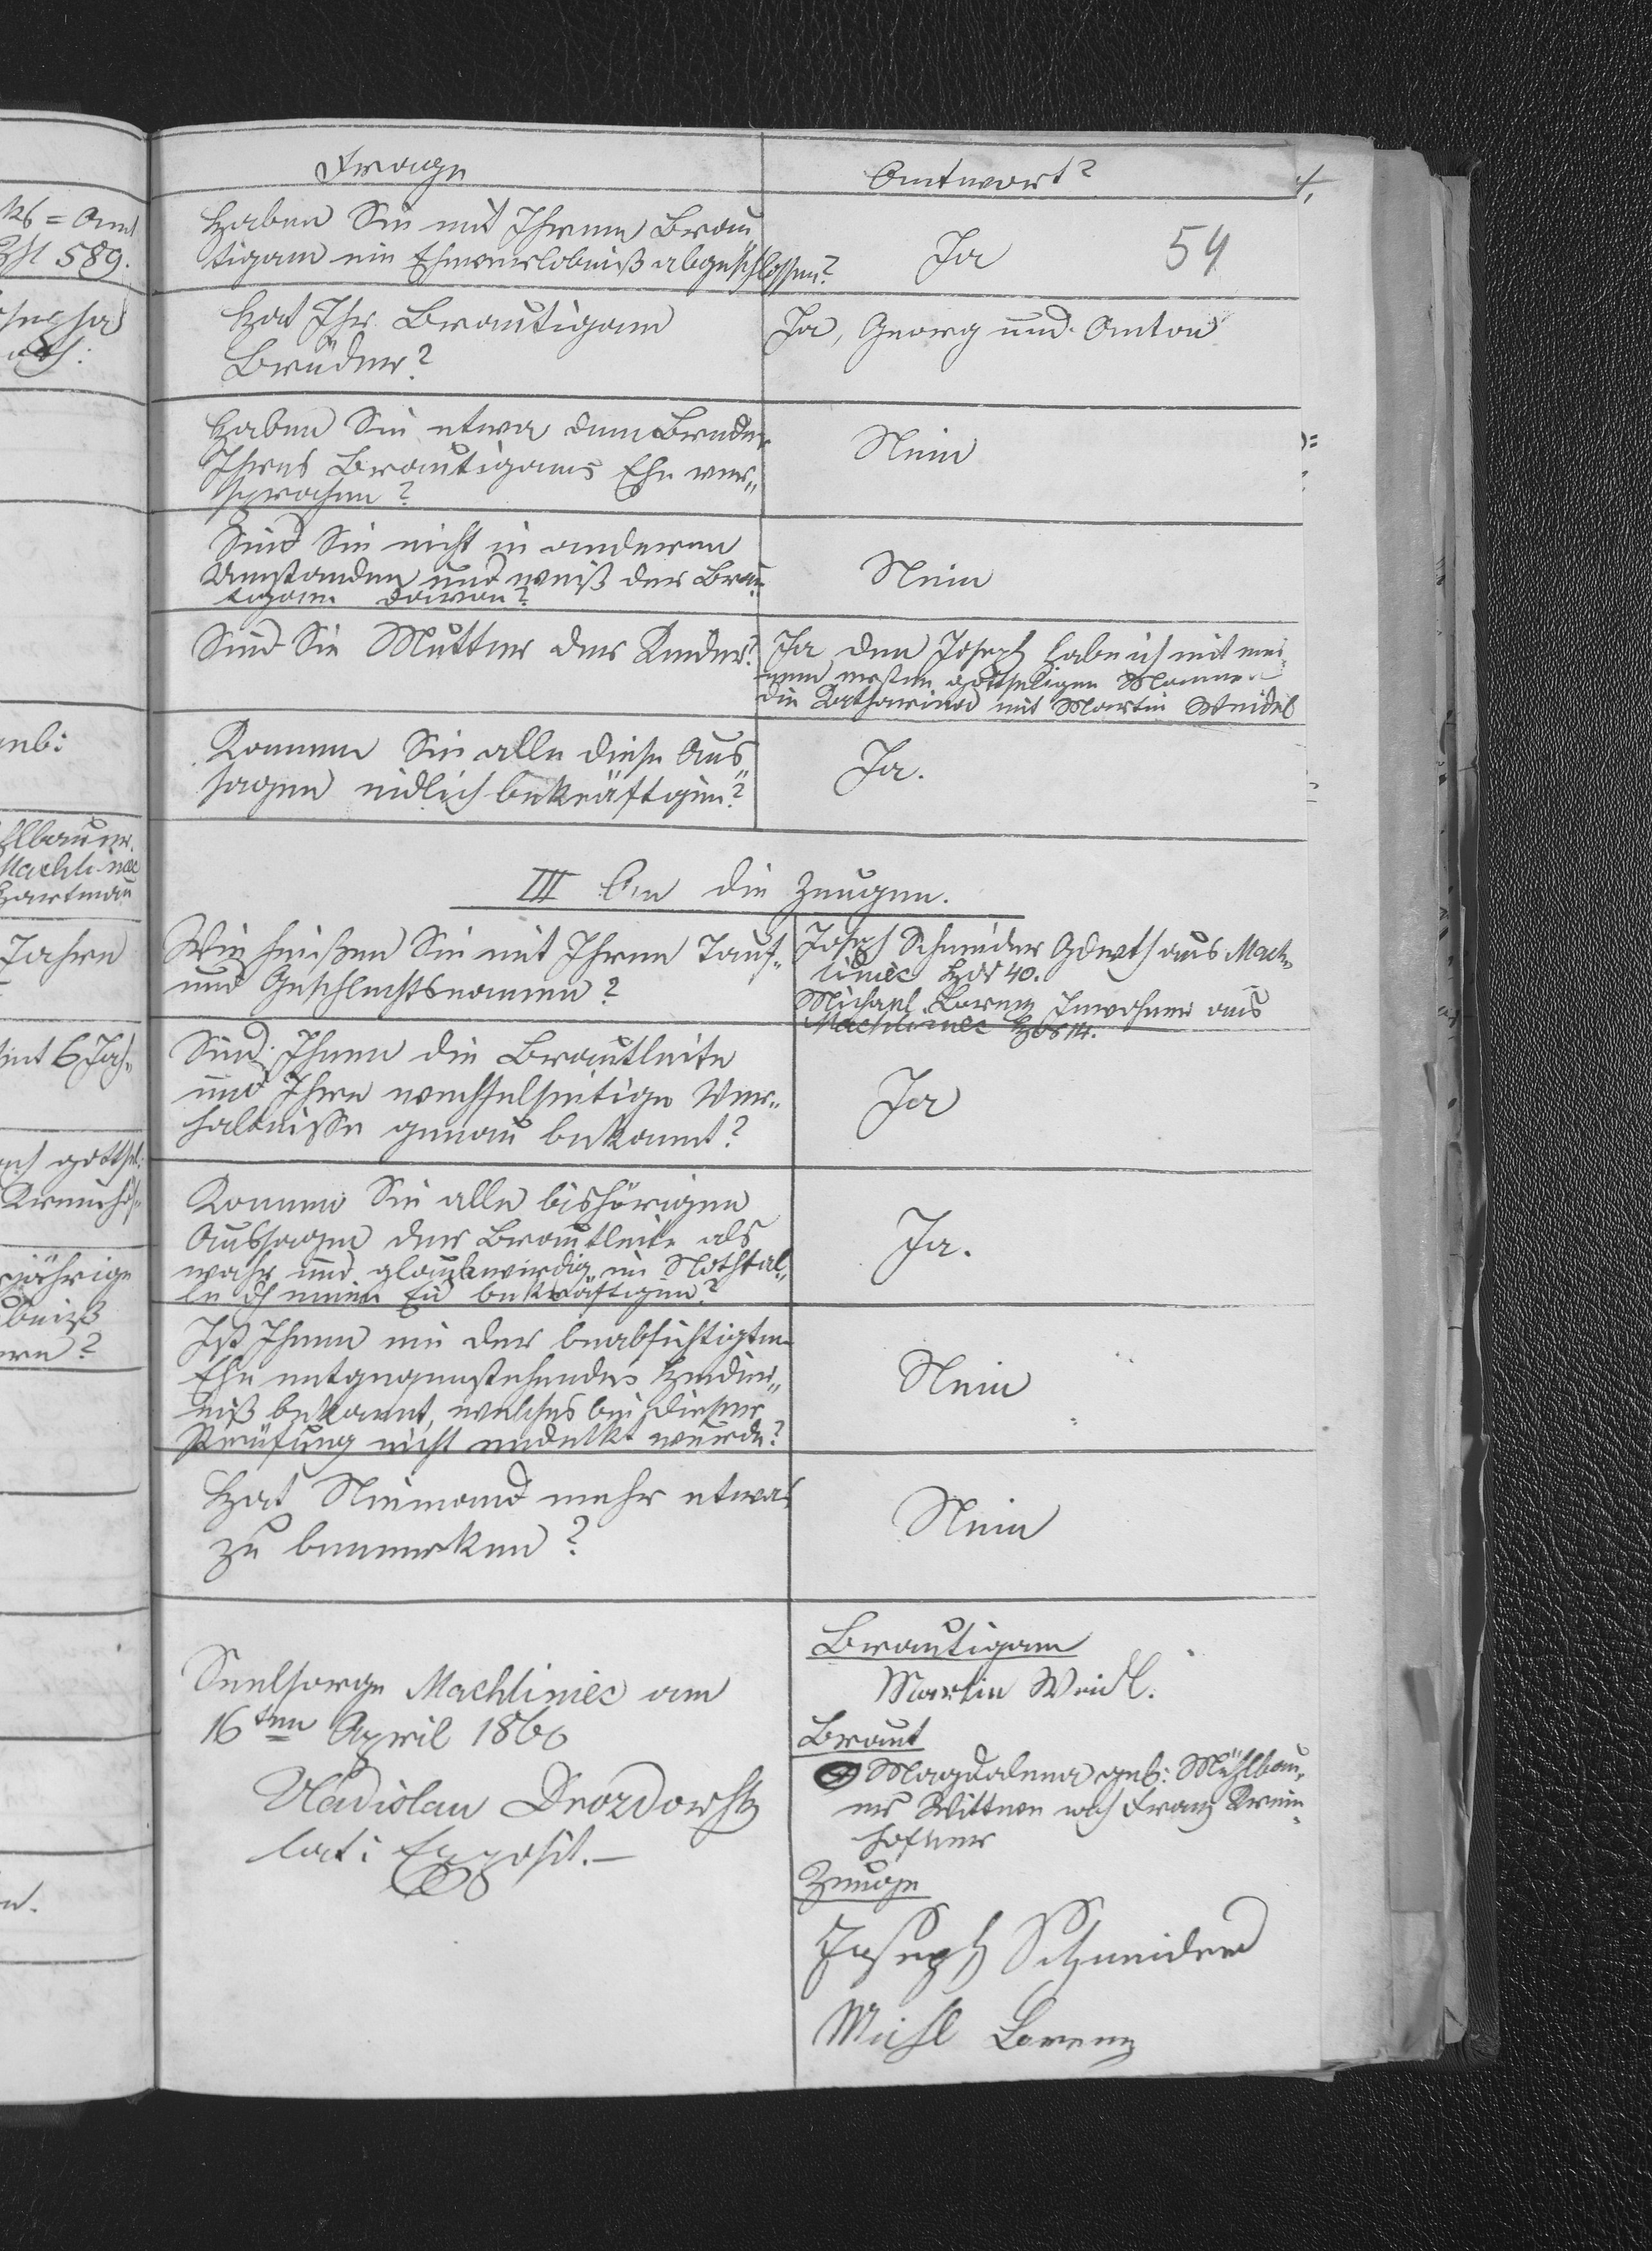 Frage
Antwort?
54
Haben Sie mit Ihrem Brau
tigam ein Eheverlobniß abgeschlossen?
Ja
Hat Ihr Brautigam
Brüder?
Ja, Georg und Anton
Haben Sie etwa dem Bruder
Ihres Brautigams Ehe ver„
sprochen?
Nein
Sind Sie nicht in anderen
Umstanden und weiß der Brau„
tigam davon?
Nein
Sind Sie Mutter der Kinder?
Ja den Joseph habe ich mit mei„
nem ersten gottseligen Manne
die Katharina mit Martin Weidl
Konnen Sie alle diese Aus„
sagen eidlich bekräftigen?
Ja.
III An die Zeugen.
Wie heißen Sie mit Ihren Tauf„
und Geschlechtsnamen?
Joseph Schneider Gdwth aus Mach„
liniec HN 40.
Michael Lorenz Inwohner aus
Machliniec 14.
Sind Ihnen die Brautleite
und Ihre wechselseitige Ver„
haltnisse genau bekannt?
Ja
Konnen Sie alle bishörigen
Aussagen der Brautleite als
wahr und glaubwirdig im Nothfal„
le d einen Eid bekräftigen?
Ja.
Ist Ihnen nie der beabsichtigten
Ehe entgegenstehendes Hinder„
niß bekannt, welches bei dieser
Prüfung nicht endekt wurde?
Nein
Hat Niemand mehr etwas
zu bemerken?
Nein
Seelsorge Machliniec am
16ten April 1860
Uladislau Drozdowski
lat: Exposit.—
Brautigam
Martin Weidl.
Braut
Magdalena geb: Mühlbau„
er Wittwe nach Franz Krein„
hofner
Zeuge
Joseph Schneider
Michl Lorenz